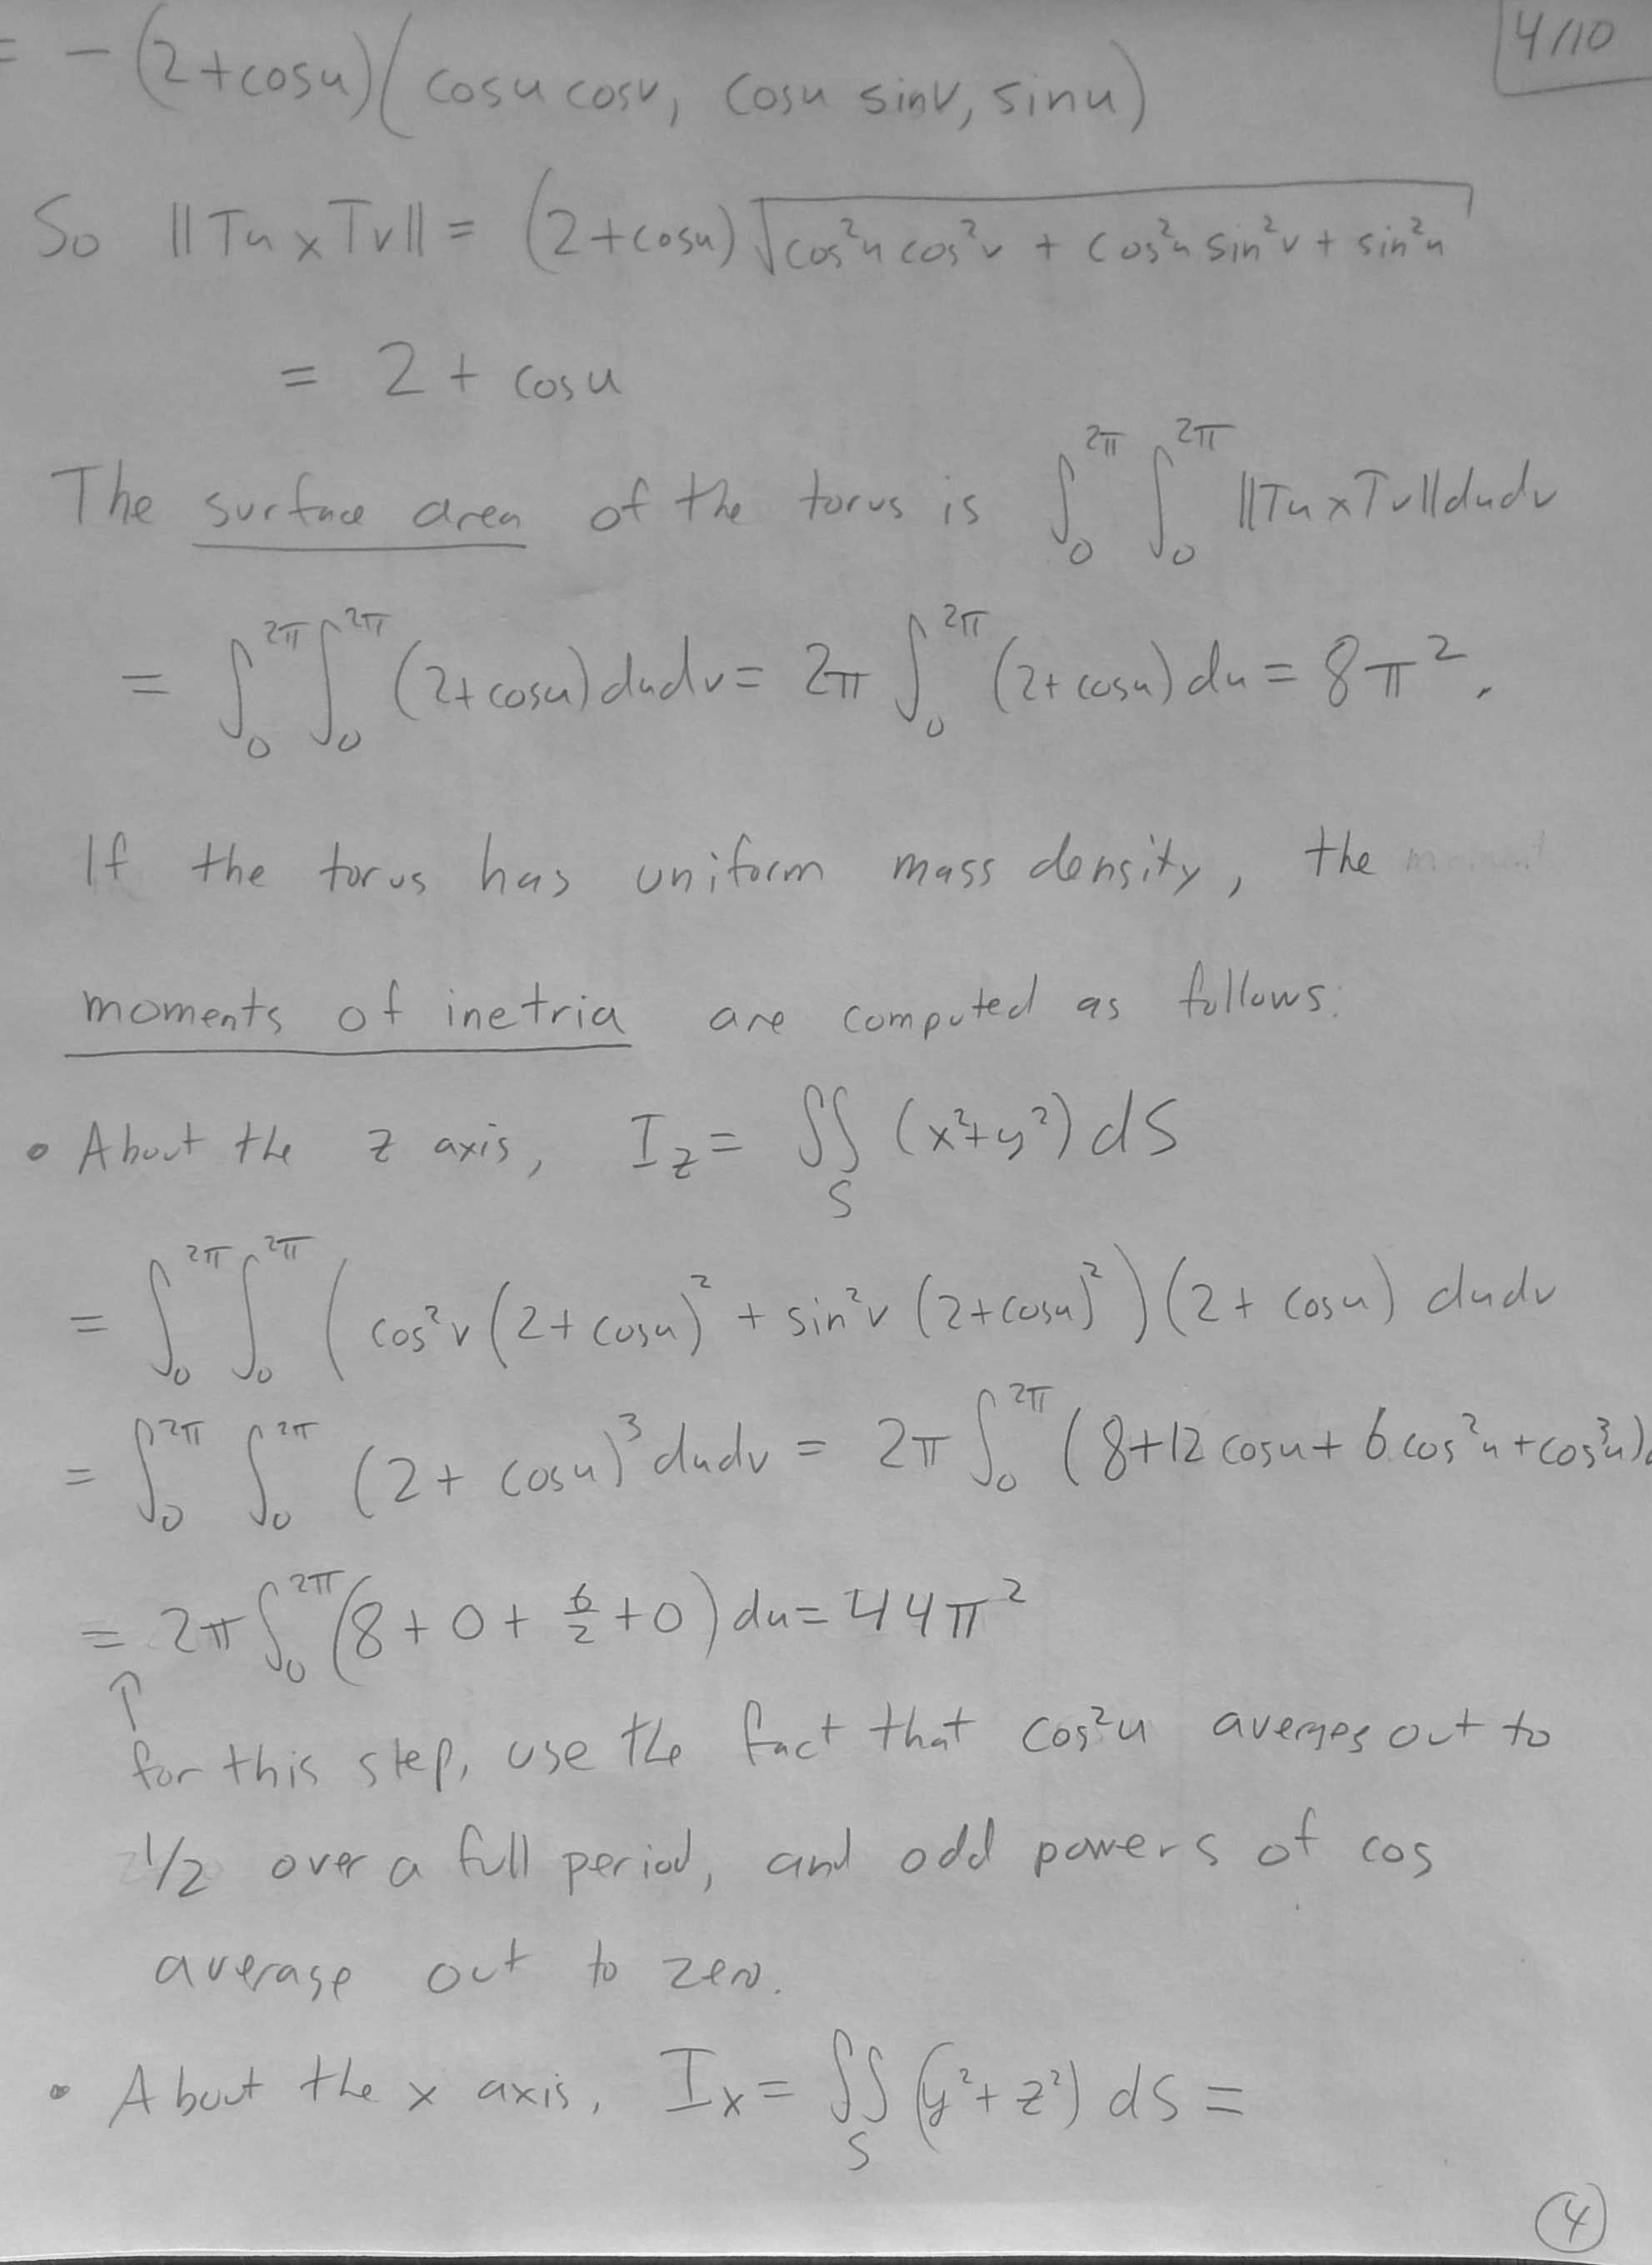 4/10
= -(2+cosu)(cosu cosv, cosu sinv, sinu)
So ||Tu x Tv|| = (2+cosu)√(cos²u cos²v + cos²u sin²v + sin²u)
= 2 + cosu
The surface area of the torus is ∫₀^2π ∫₀^2π ||Tu x Tv|| dudv
= ∫₀^2π ∫₀^2π (2+cosu) dudv = 2π ∫₀^2π (2+cosu) du = 8π².
If the torus has uniform mass density, the
moments of inetria are computed as follows:
• About the z axis, I_z = ∬_S (x²+y²) dS
= ∫₀^2π ∫₀^2π (cos²v (2+cosu)² + sin²v (2+cosu)²)(2+cosu) dudv
= ∫₀^2π ∫₀^2π (2+cosu)³ dudv = 2π ∫₀^2π (8+12cosu+6cos²u+cos³u)
= 2π ∫₀^2π (8+0+6/2+0) du = 44π²
↑
for this step, use the fact that cos²u averges out to
1/2 over a full period, and odd powers of cos
average out to zero.
• About the x axis, I_x = ∬_S (y²+z²) dS =
4